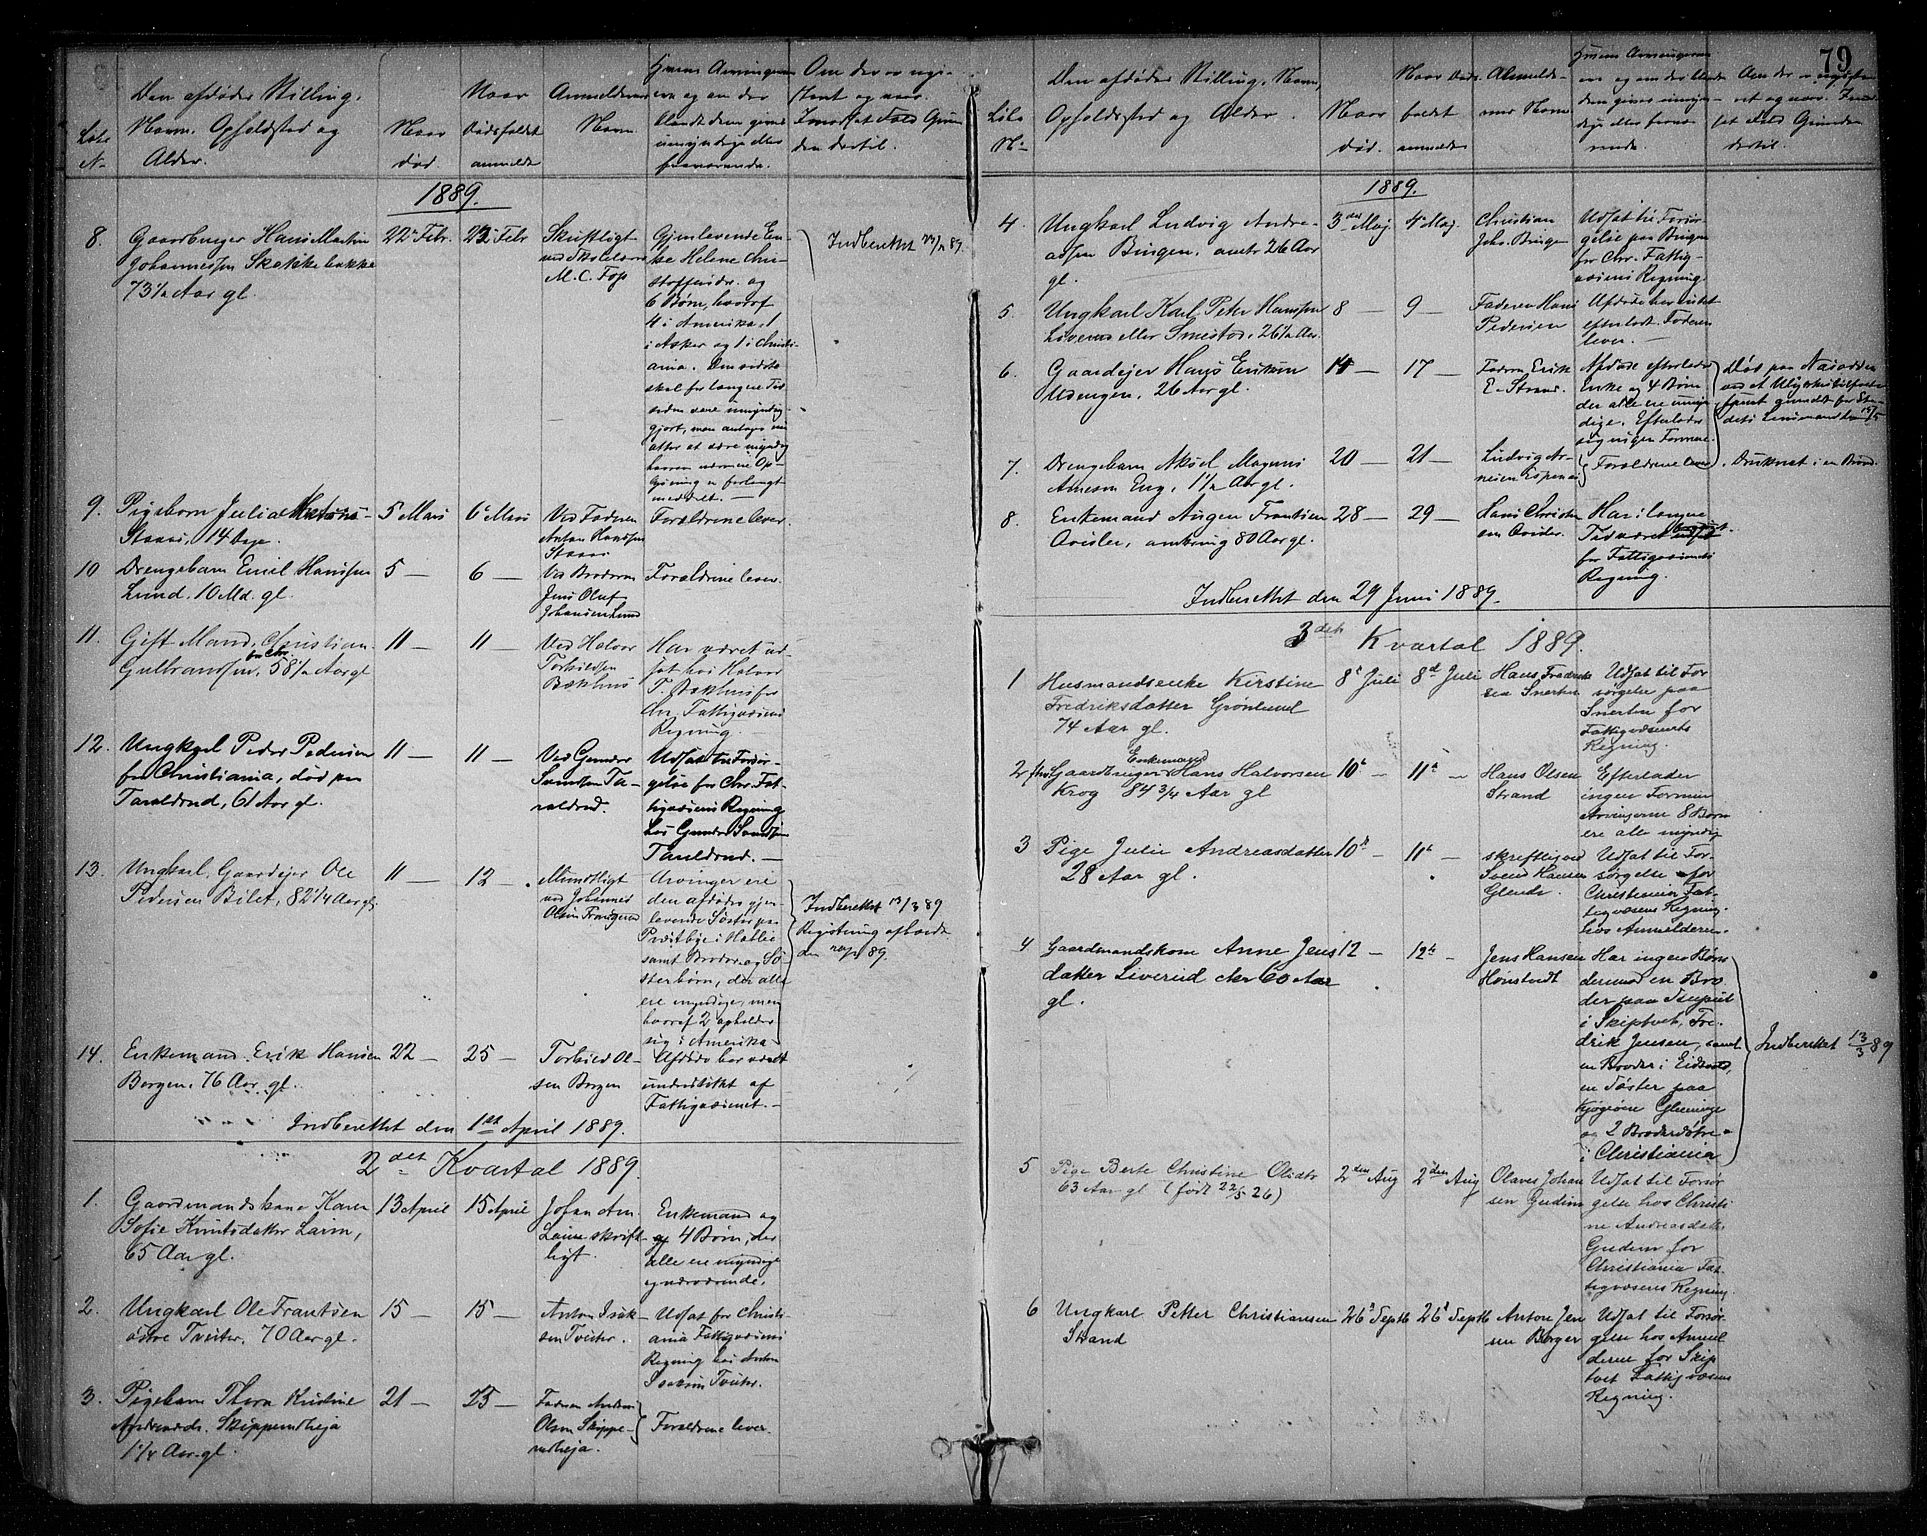 79
Den afdødes Stilling,
Navn, Opholdsted og
Alder.
Naar
død
Naar
Dødsfaldet
anmeldt
Anmelderens
Navn
1889.
8. Gaardbruger Hans Martin
Johannessen Skakkebakke
73½ Aar gl.
22 Febr.
23 Febr
Skriftligt
ved Skolelærer
M. C. Foss
Gjenlevende En-
ke Helene Chri-
stoffersdr. og
6 Børn, hvoraf
4 i Amerika, 1
i Asker og 1 i Christi-
ania. Den sidste
skal for længere Tid
siden være umyndig-
gjort, men antages nu
atter at være myndig
hvorom nærmere Op-
lysning er forlangt
meddelt. —
Indberettet
9. Pigebarn Julie
14 Dage.
5 Mars
6 Mars
Ved Faderen
Anton Hansen
Forældrene lever.
10 Drengebarn Emil Hanssen
Lund. 10 Md. gl.
5 —
6 —
Ved Broderen
Jens Oluf
Johansen Lund
Forældrene lever.
11. Gift Mand, Christian
Gulbrandsen, fra Chr. 58½ Aar gl
11 —
11 —
Ved Halvor
Torkildsen
Bækhus
Har været ud-
sat hos Halvor
T. Bækhus for
Chr. Fattigvæsens
Regning. —
12. Ungkarl Peder Pedersen
fra Christiania, død paa
Taraldrud, 61 Aar gl.
11 —
11 —
Ved Gunder
Samdsen Ta-
raldrud.
Udsat til Forsør-
gelse for Chr. Fat-
tigvæsens Regning
hos Gunder
Taraldrud. —
13. Ungkarl, Gaardejer Ole
Pedersen Bilet, 82¼ Aar gl.
11 —
12 —
Mundtligt
ved Johannes
Olsen
Arvinger ere
den afdødes gjen-
levende Søster paa
Præstbye i Hobbøl
samt Broder og Sø-
sterbørn, der alle
ere myndige, men
hvoraf 2 opholder
sig i Amerika.
Indberettet 13/3 89
Registrering afholdt
den 89.
14. Enkemand Erik Hansen
Borgen, 76 Aar gl.
22 —
25 —
Torkild Ol-
sen Borgen
Afdøde har været
understøttet af
Fattigvæsenet. —
Indberettet den 1st April 1889.
2det Kvartal 1889.
1. Gaardmandskone Karen
Sofie Knutsdatter Larim,
65 Aar gl.
13 April
15 April
Johan Am.
skrift-
ligt.
Enkemand og
4 Børn, der
alle ere myndige
og nærværende.
2. Ungkarl Ole Frantsen
østre Tveiter, 70 Aar gl.
15 —
15 —
Anton Isak-
sen Tveiter.
Udsat for Christi-
ania Fattigvæsens
Regning hos Anton
Isaksen Tveiter.
3. Pigebarn Thora Kristine
Andreasdr. Skippenudheja
1¼ Aar gl.
21 —
25 —
Faderen Andreas
Olsen Skippe-
nudheja.
Forældrene lever.
Den afdødes Stilling, Navn,
Opholdsted og Alder.
Naar
død.
Naar Døds-
faldet
anmeldt
Anmelde-
rens Navn
1889.
4. Ungkarl Ludvig Andre-
assen Bingen, omtr. 26 Aar
gl.
3die Maj
4 Maj
Christian
Joh. Bingen
Udsat til Forsør-
gelse paa Bingen
for Chr. Fattig-
væsens Regning
5. Ungkarl Karl Peter Hanssen
Liverud eller Smestad, 26½ Aar.
8 —
9 —
Faderen Hans
Pedersen
Afdøde har intet
efterladt. Faderen
lever. —
6. Gaardejer Hans Eriksen
Udengen, 26 Aar gl.
14 —
17 —
Faderen Erik
E. Strand.
Afdøde efterlader
Enke og 4 Børn
der alle ere umyn-
dige. Efterlader
sig ingen Formue.
Død paa Næsodden
ved et Ulykkestilfælde
7. Drengebarn Aksel Magnus
Arnesen Eng, 1½ Aar gl.
20 —
21 —
Ludvig Ar-
nesen Espenæs
Forældrene lever
Druknet i en Brønd.
8. Enkemand Augen Frantsen
Ovisler, omkring 80 Aar gl.
28 —
29 —
Hans Christen-
sen Ovisler.
Har i længere
Tid været
for Fattigvæsenets
Regning.
Indberettet den 29 Juni 1889.
3det Kvartal 1889.
1 Husmandsenke Kirstine
Fredriksdatter Grønlund
74 Aar gl.
8 Juli
8d Juli
Hans Fredrik-
sen Snerten
Udsat til For-
sørgelse paa
Snerten for
Fattigvæsenets
Regning.
2 fhv Gaardbruger Enkemand Hans Halvorsen
Krog 84 3/4 Aar gl
10 —
11 —
Hans Olsen
Strand
Efterlader
ingen Formue
Arvingerne 8 Børn
ere alle myndig
3 Pige Julie Andreasdatter
28 Aar gl.
10 —
11 —
skriftlig ved
Svend Hansen
Glende.
Udsat til For-
sørgelse for
Christiania Fat-
tigvæsens Regning.
hos Anmelderen.
4 Gaardmandskone Anne Jens
datter Liverud cirka 60 Aar
gl.
12 —
12
Jens Hansen
Hønstvedt
Har ingen Børn
derimod en Bro-
der paa
i Skiptvet, Fre-
drik Jensen, samt
en Broder i Eidsvold,
en Søster paa
Kjøgøen Glemminge
og 2 Broderdøtre
i Christiania
Indberettet 13/3 89
5 Pige Berte Christine Olsdtr
63 Aar gl (født 22/5 26)
2den Aug
2den Aug
Olaves Johan-
sen Gudim
Udsat til Forsør-
gelse hos Christi-
ne Andreasdatter
Gudim for
Christiania Fat-
tigvæsens Regning.
6 Ungkarl Petter Christiansen
Strand
26 Septb
26 Septb
Anton Jen-
sen Borger
Udsat til Forsør-
gelse hos Anmel-
deren for Skip-
tvet Fattigvæsens
Regning.